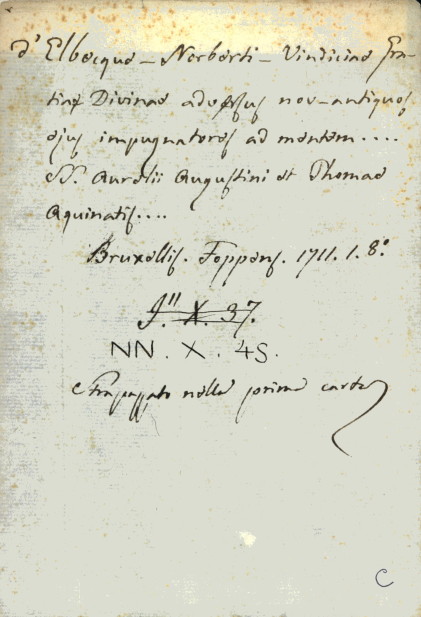 d'Elbecque - Norberti - Vindiciae Gra-
tiae Divinae adversus nov-antiquos
ejus impugnatores ad mentem ....
SS. Aurelii Augustini et Thomae
Aquinatis....
Bruxellis. Foppens. 1711. 1. 8.º
J." X. 37.
NN. X. 45.
Strappato nella prima carta
C